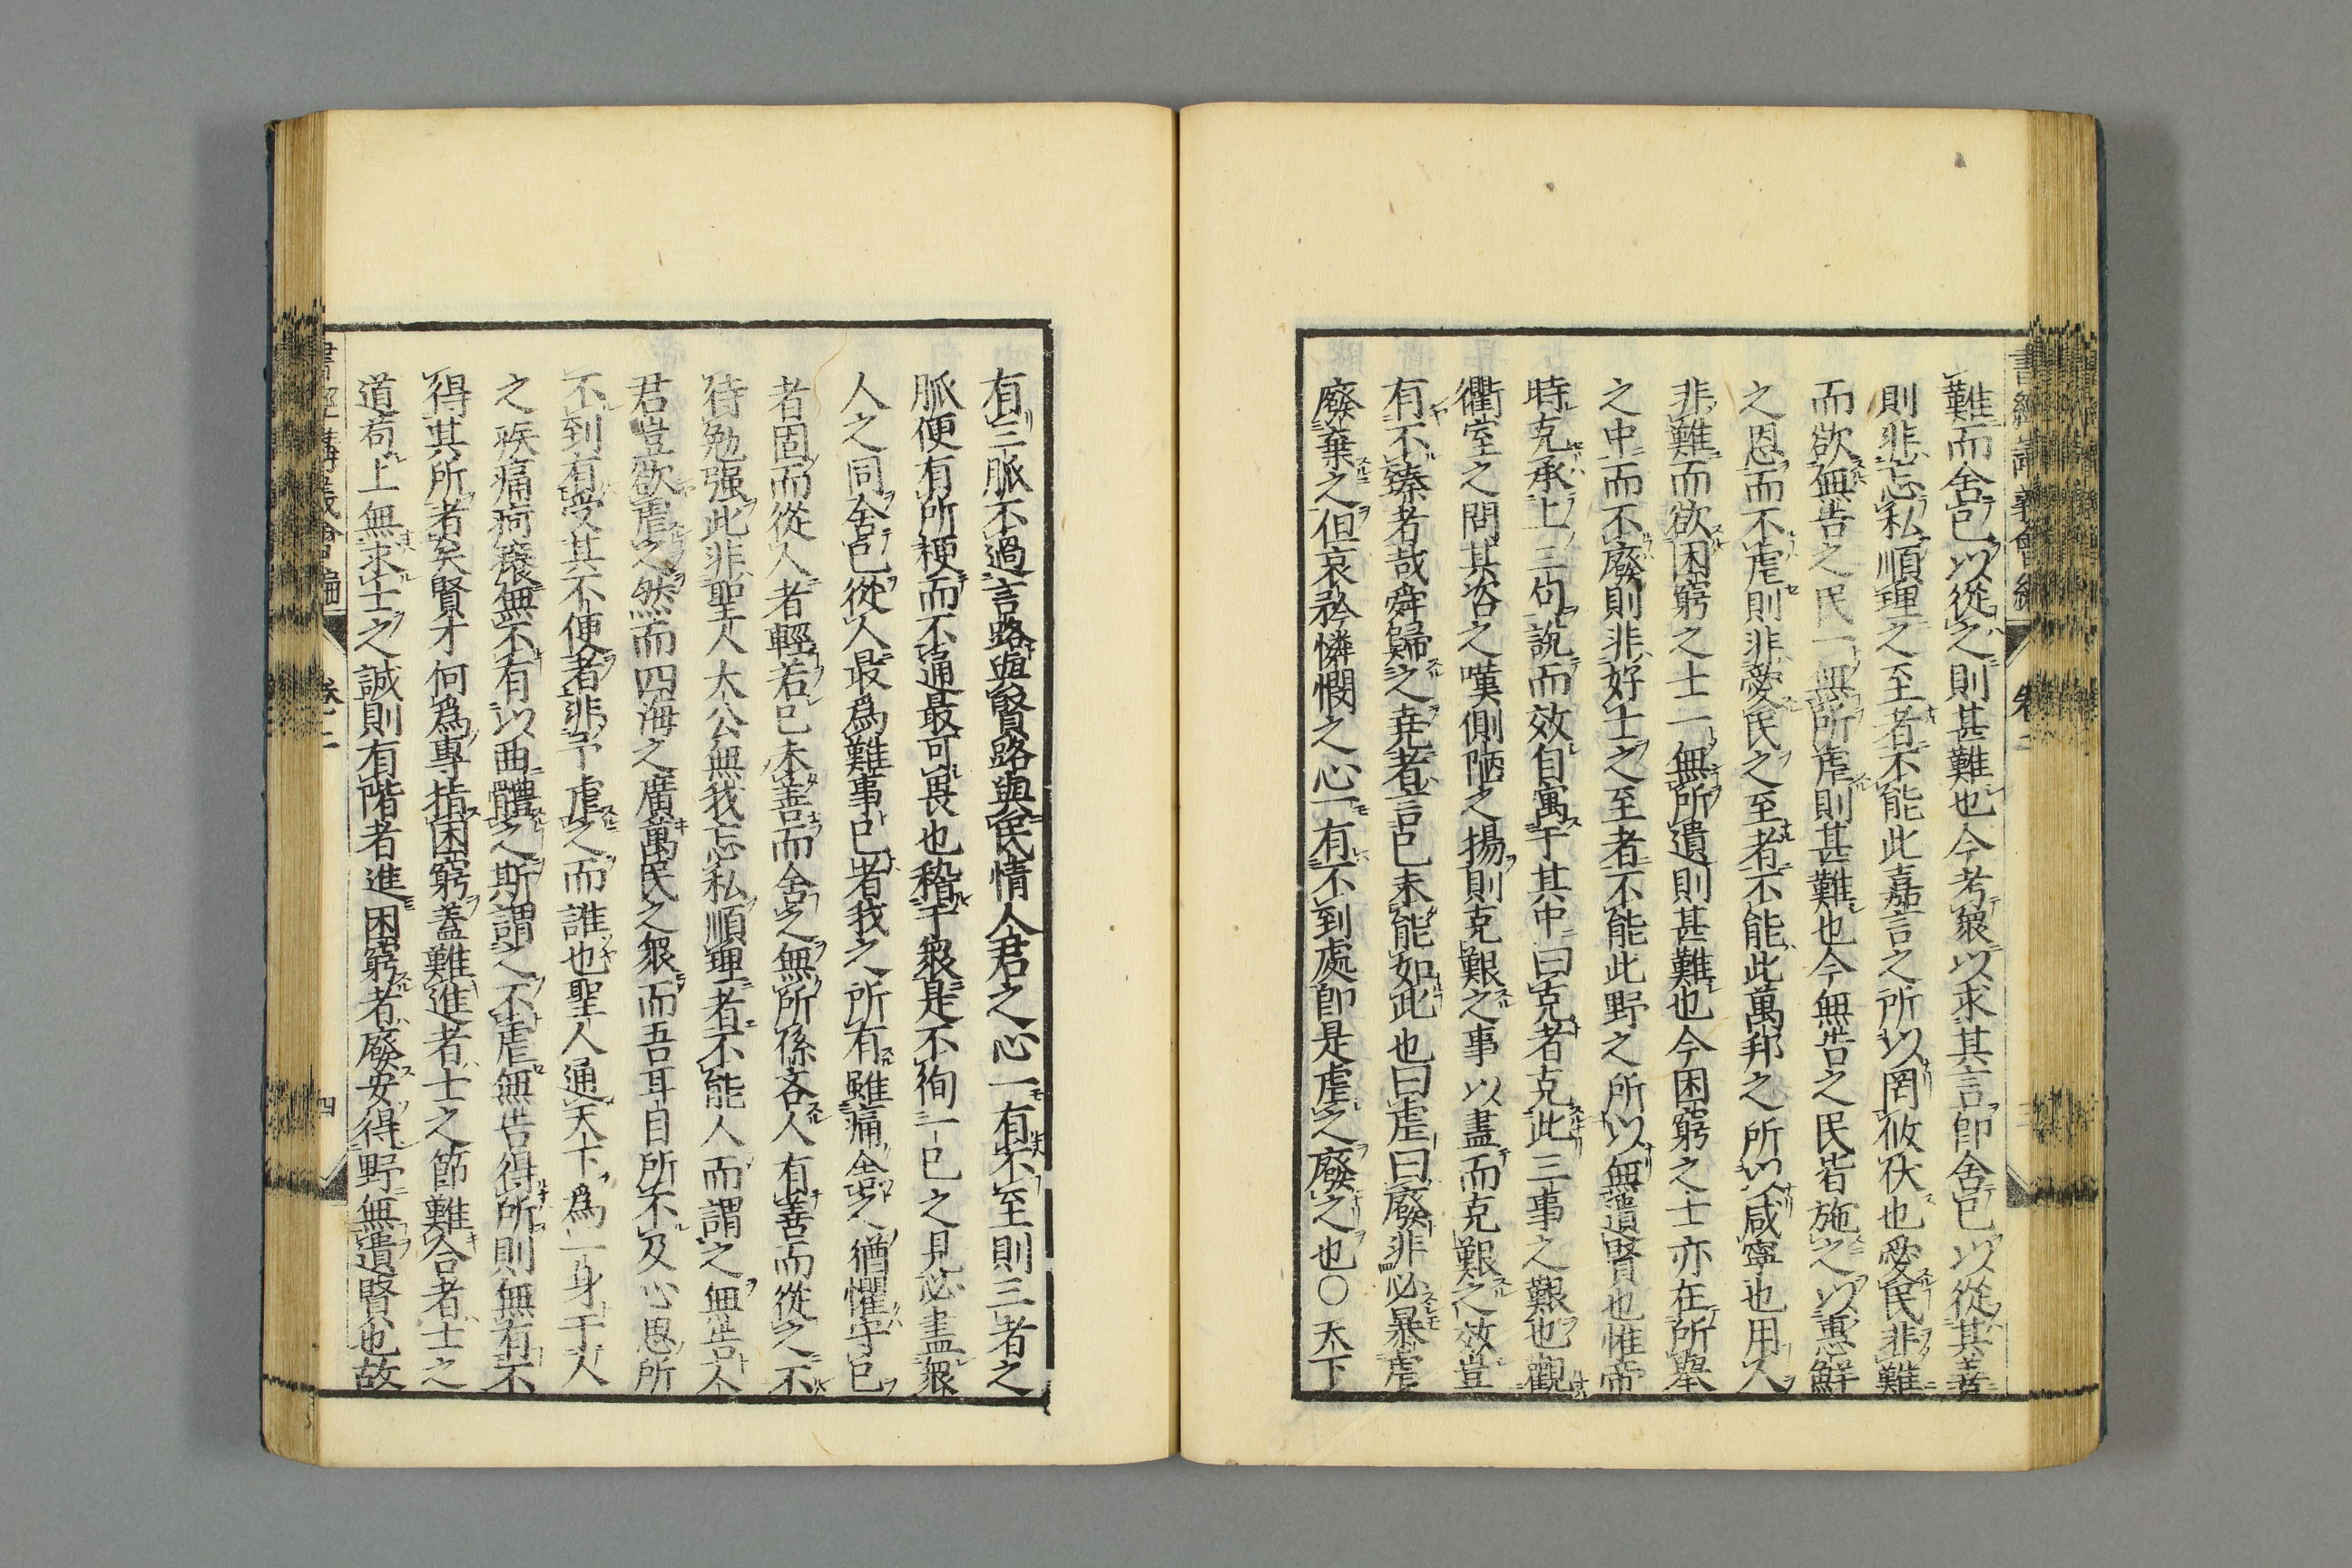 難而舍己以從之則甚難也今考衆以求其言卽舍己以從其善
則非忘私順理之至者不能此嘉言之所以罔攸伏也愛民非難
而欲無告之民一無所虐則甚難也今無告之民皆施之以惠鮮
之恩而不虐則非愛民之至者不能此萬邦之所以咸寧也用人
非難而欲困窮之士一無所遺則甚難也今困窮之士亦在所舉
之中而不廢則非好士之至者不能此野之所以無遺賢也惟帝
時克承上三句說而效自寓于其中曰克者克此三事之艱也觀
衢室之問其咨之嘆側陋之揚則克艱之事以盡而克艱之效豈
有不臻者哉舜歸之堯者言己未能如此也曰虐曰廢非必暴虐
廢棄之但哀矜憐憫之心一有不到處卽是虐之廢之也○天下
有三脈不過言路與賢路與民情人君之心一有不至則三者之
脈便有所梗而不通最可畏也稽于衆是不徇一己之見必盡衆
人之同舍己從人最爲難事己者我之所有雖痛舍之猶懼守己
者固而從人者輕若己未善而舍之無所係吝人有善而從之不
待勉强此非聖人大公無我忘私順理者不能人而謂之無告人
君豈欲虐之然而四海之廣萬民之衆而吾耳目所不及心思所
不到有受其不便者非予虐之而誰也聖人通天下爲一身于人
之疾痛疴癢無不有以曲體之斯謂之不虐無告得所則無有不
得其所者矣賢才何爲專指困窮蓋難進者士之節難合者士之
道苟上無求士之誠則有階者進困窮者廢安得野無遺賢也故
書經講義會編 卷二 四